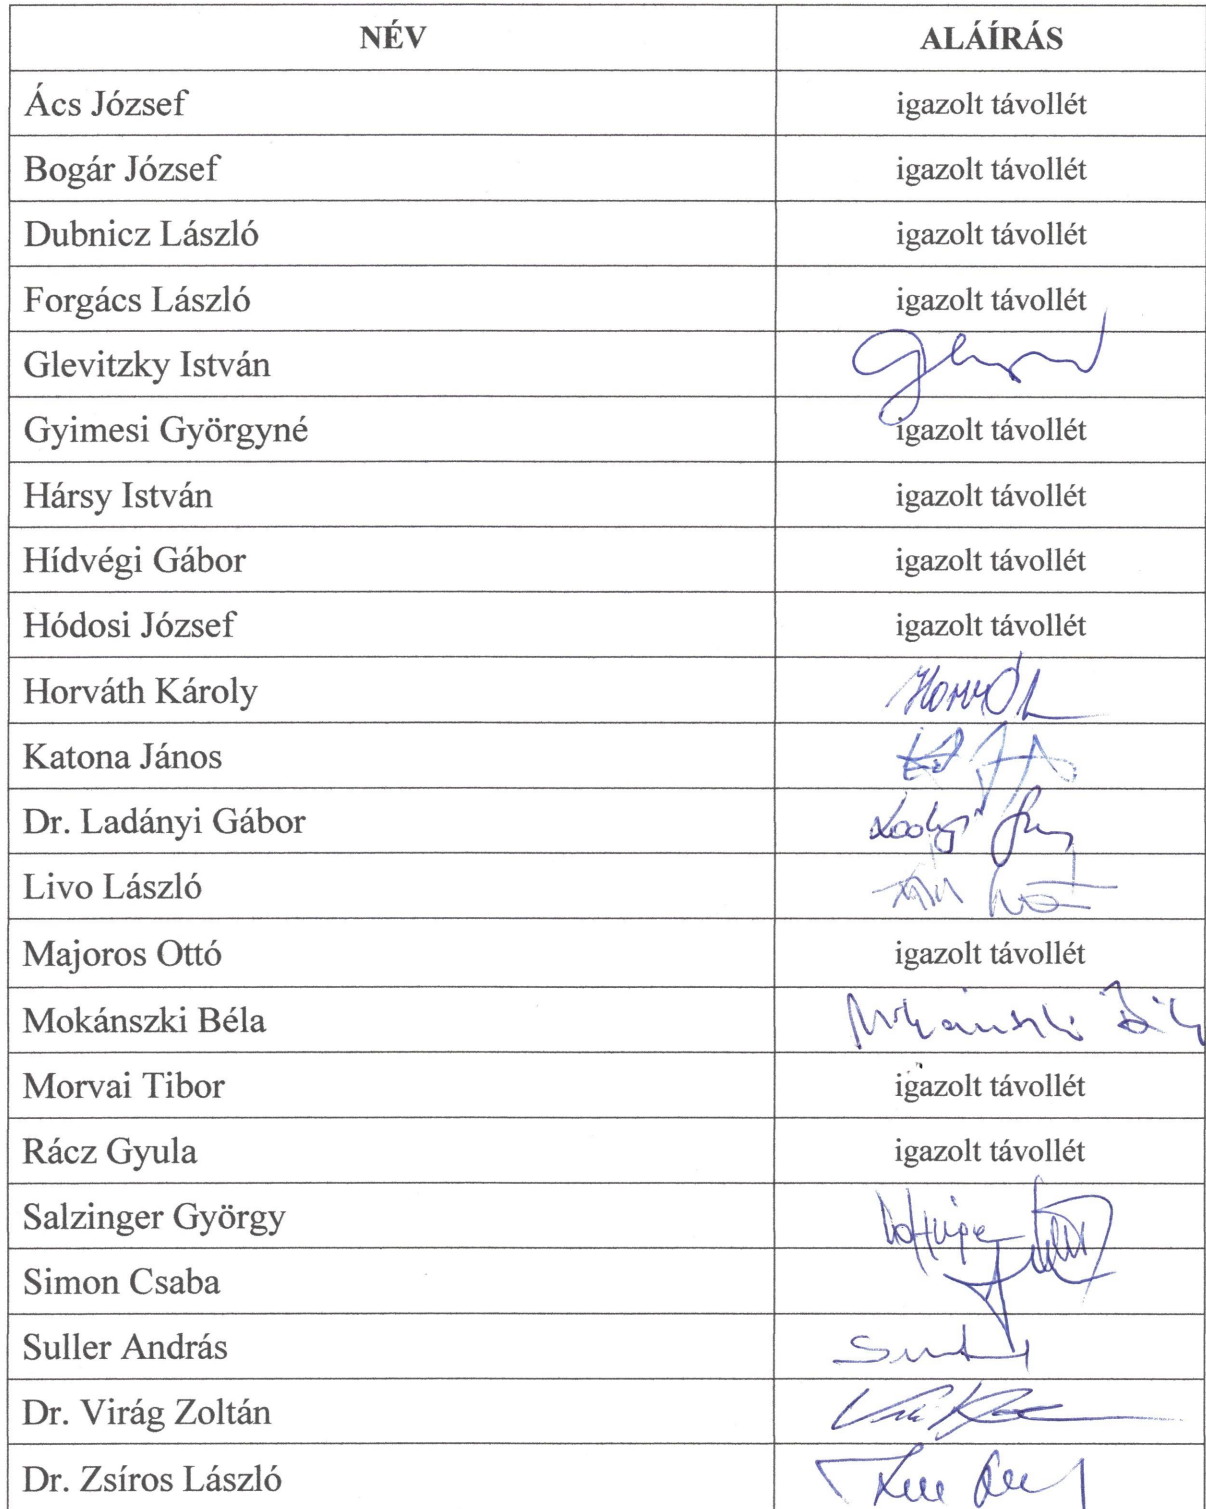 NÉV ALÁÍRÁS
Ács József igazolt távollét
Bogár József igazolt távollét
Dubnicz László igazolt távollét
Forgács László igazolt távollét
Glevitzky István
Gyimesi Györgyné igazolt távollét
Hársy István igazolt távollét
Hídvégi Gábor igazolt távollét
Hódosi József igazolt távollét
Horváth Károly
Katona János
Dr. Ladányi Gábor
Livo László
Majoros Ottó igazolt távollét
Mokánszki Béla Mokánszki Béla
Morvai Tibor igazolt távollét
Rácz Gyula igazolt távollét
Salzinger György
Simon Csaba
Suller András
Dr. Virág Zoltán
Dr. Zsíros László